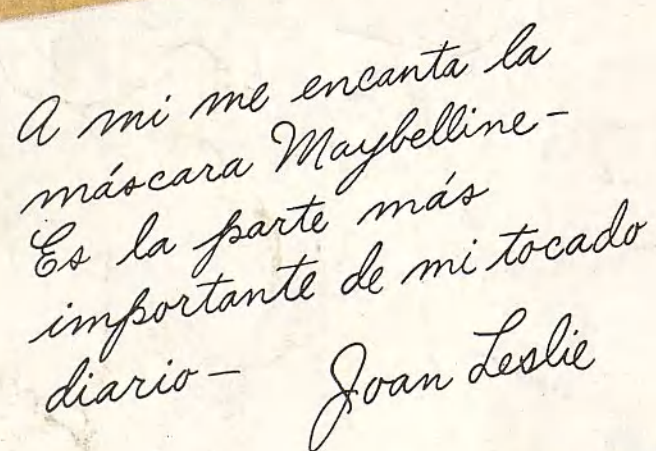 A mi me encanta la
máscara Maybelline-
Es la parte más
importante de mi tocado
diario- Joan Leslie